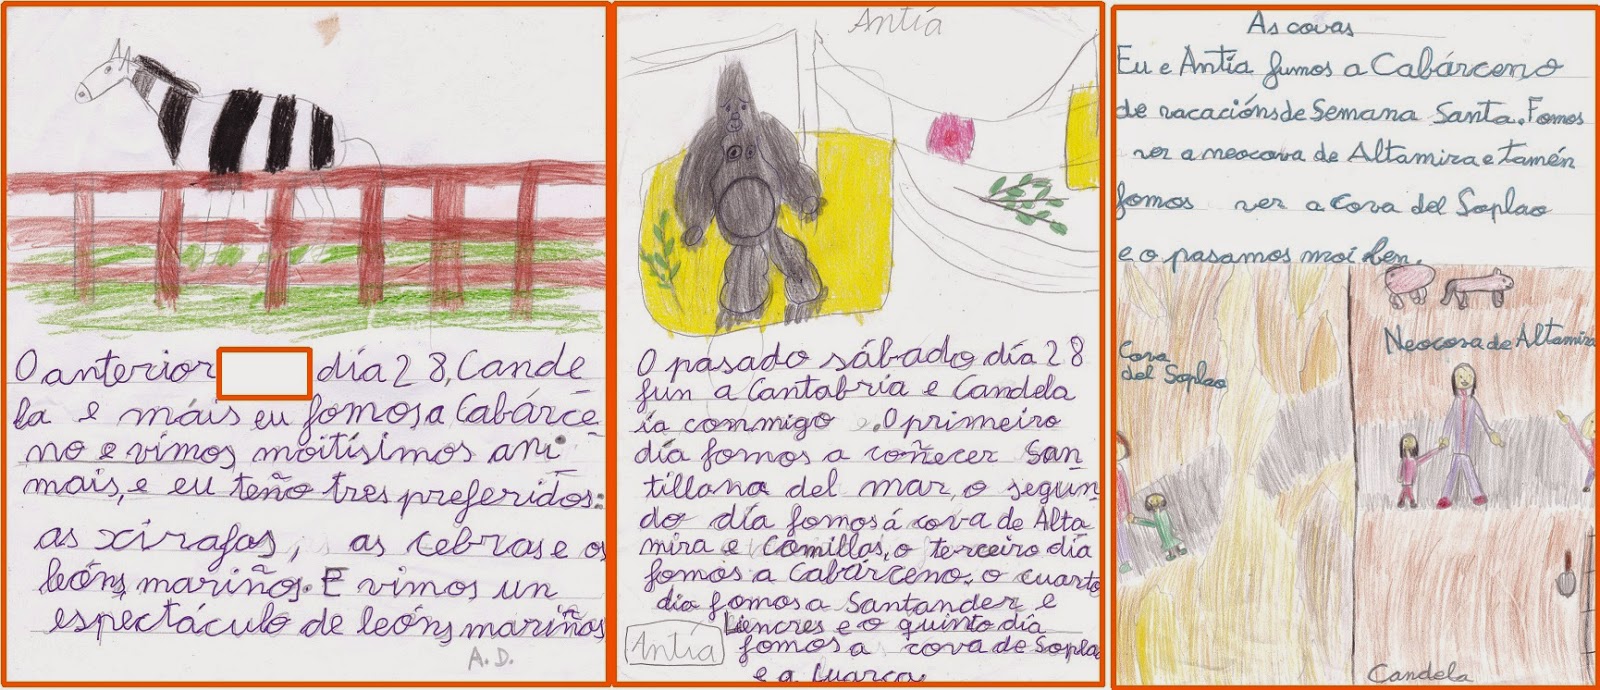 O anterior día 28, Cande
la e máis eu fomos a Cabárce-
no e vimos moitísimos ani-
mais, e eu teño tres preferidos:
as xirafas, as cebras e os
leóns mariños. E vimos un
espectáculo de leóns mariños
A. D.
Antía
O pasado sábado día 28
fun a Cantabria e Candela
ía conmigo. O primeiro
día fomos a coñecer San-
tillana del mar, o segun-
do día fomos á cova de Alta
mira e Comillas, o terceiro día
fomos a Cabárceno, o cuarto
día fomos a Santander e
Liencres e o quinto día
fomos a cova de Soplao
e a Cuarca.
Antía
As covas
Eu e Antía fumos a Cabárceno
de vacacións de Semana Santa. Fomos
ver a neocova de Altamira e tamén
fomos ver a Cova del Soplao
e o pasamos moi ben.
Cova
del Soplao
Neocova de Altamira
Candela